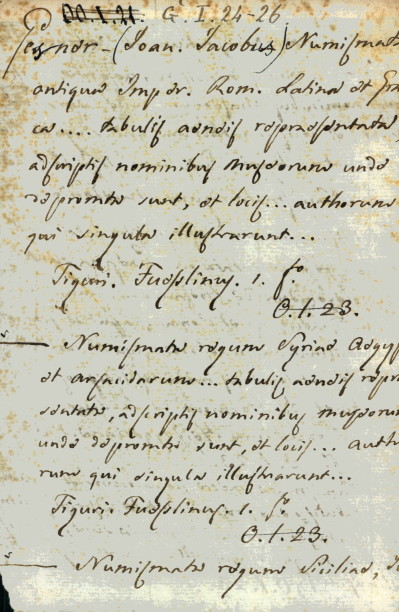 OO.1.21. G. I. 24-26
Gesner - (Joan. Jacobus) Numismat
antiqua Imper. Rom. Latina et Gra
ca.... tabulis aeneis repraesentata,
adscriptis nominibus museorum unde
depromta sunt, et locis... authorum
qui singula illustrarunt...
Tiguri. Fueslinus. 1. fo.
O.1.23.
— Numismata regum Syriae Aegyp
et arsacidarum... tabulis aeneis repre
sentata, adscriptis nominibus museorum
unde depromta sunt, et locis... autho
rum qui singula illustrarunt...
Tiguri. Fueslinus. 1. fo.
O.1.23.
— Numismata regum Siciliae,